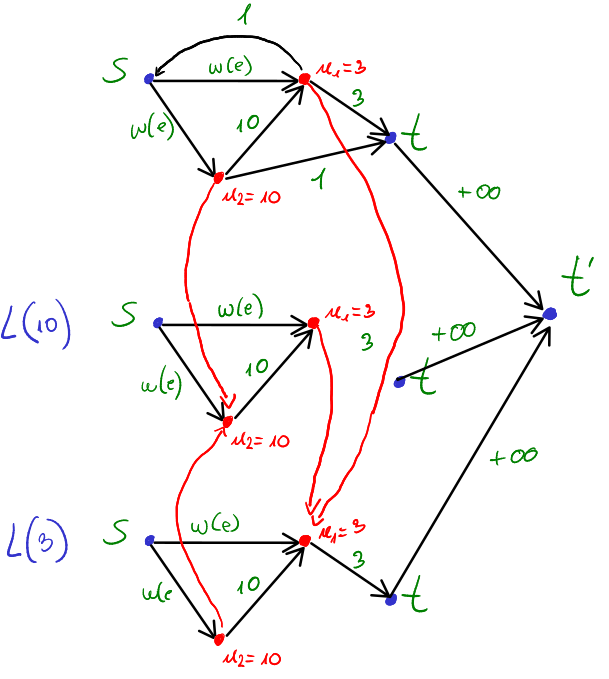 1
S
w(e)
u₁=3
3
w(e)
10
t
1
u₂=10
+∞
t'
L(10)
S
w(e)
u₁=3
3
+∞
w(e)
10
t
u₂=10
+∞
L(3)
S
w(e)
u₁=3
3
w(e
10
t
u₂=10